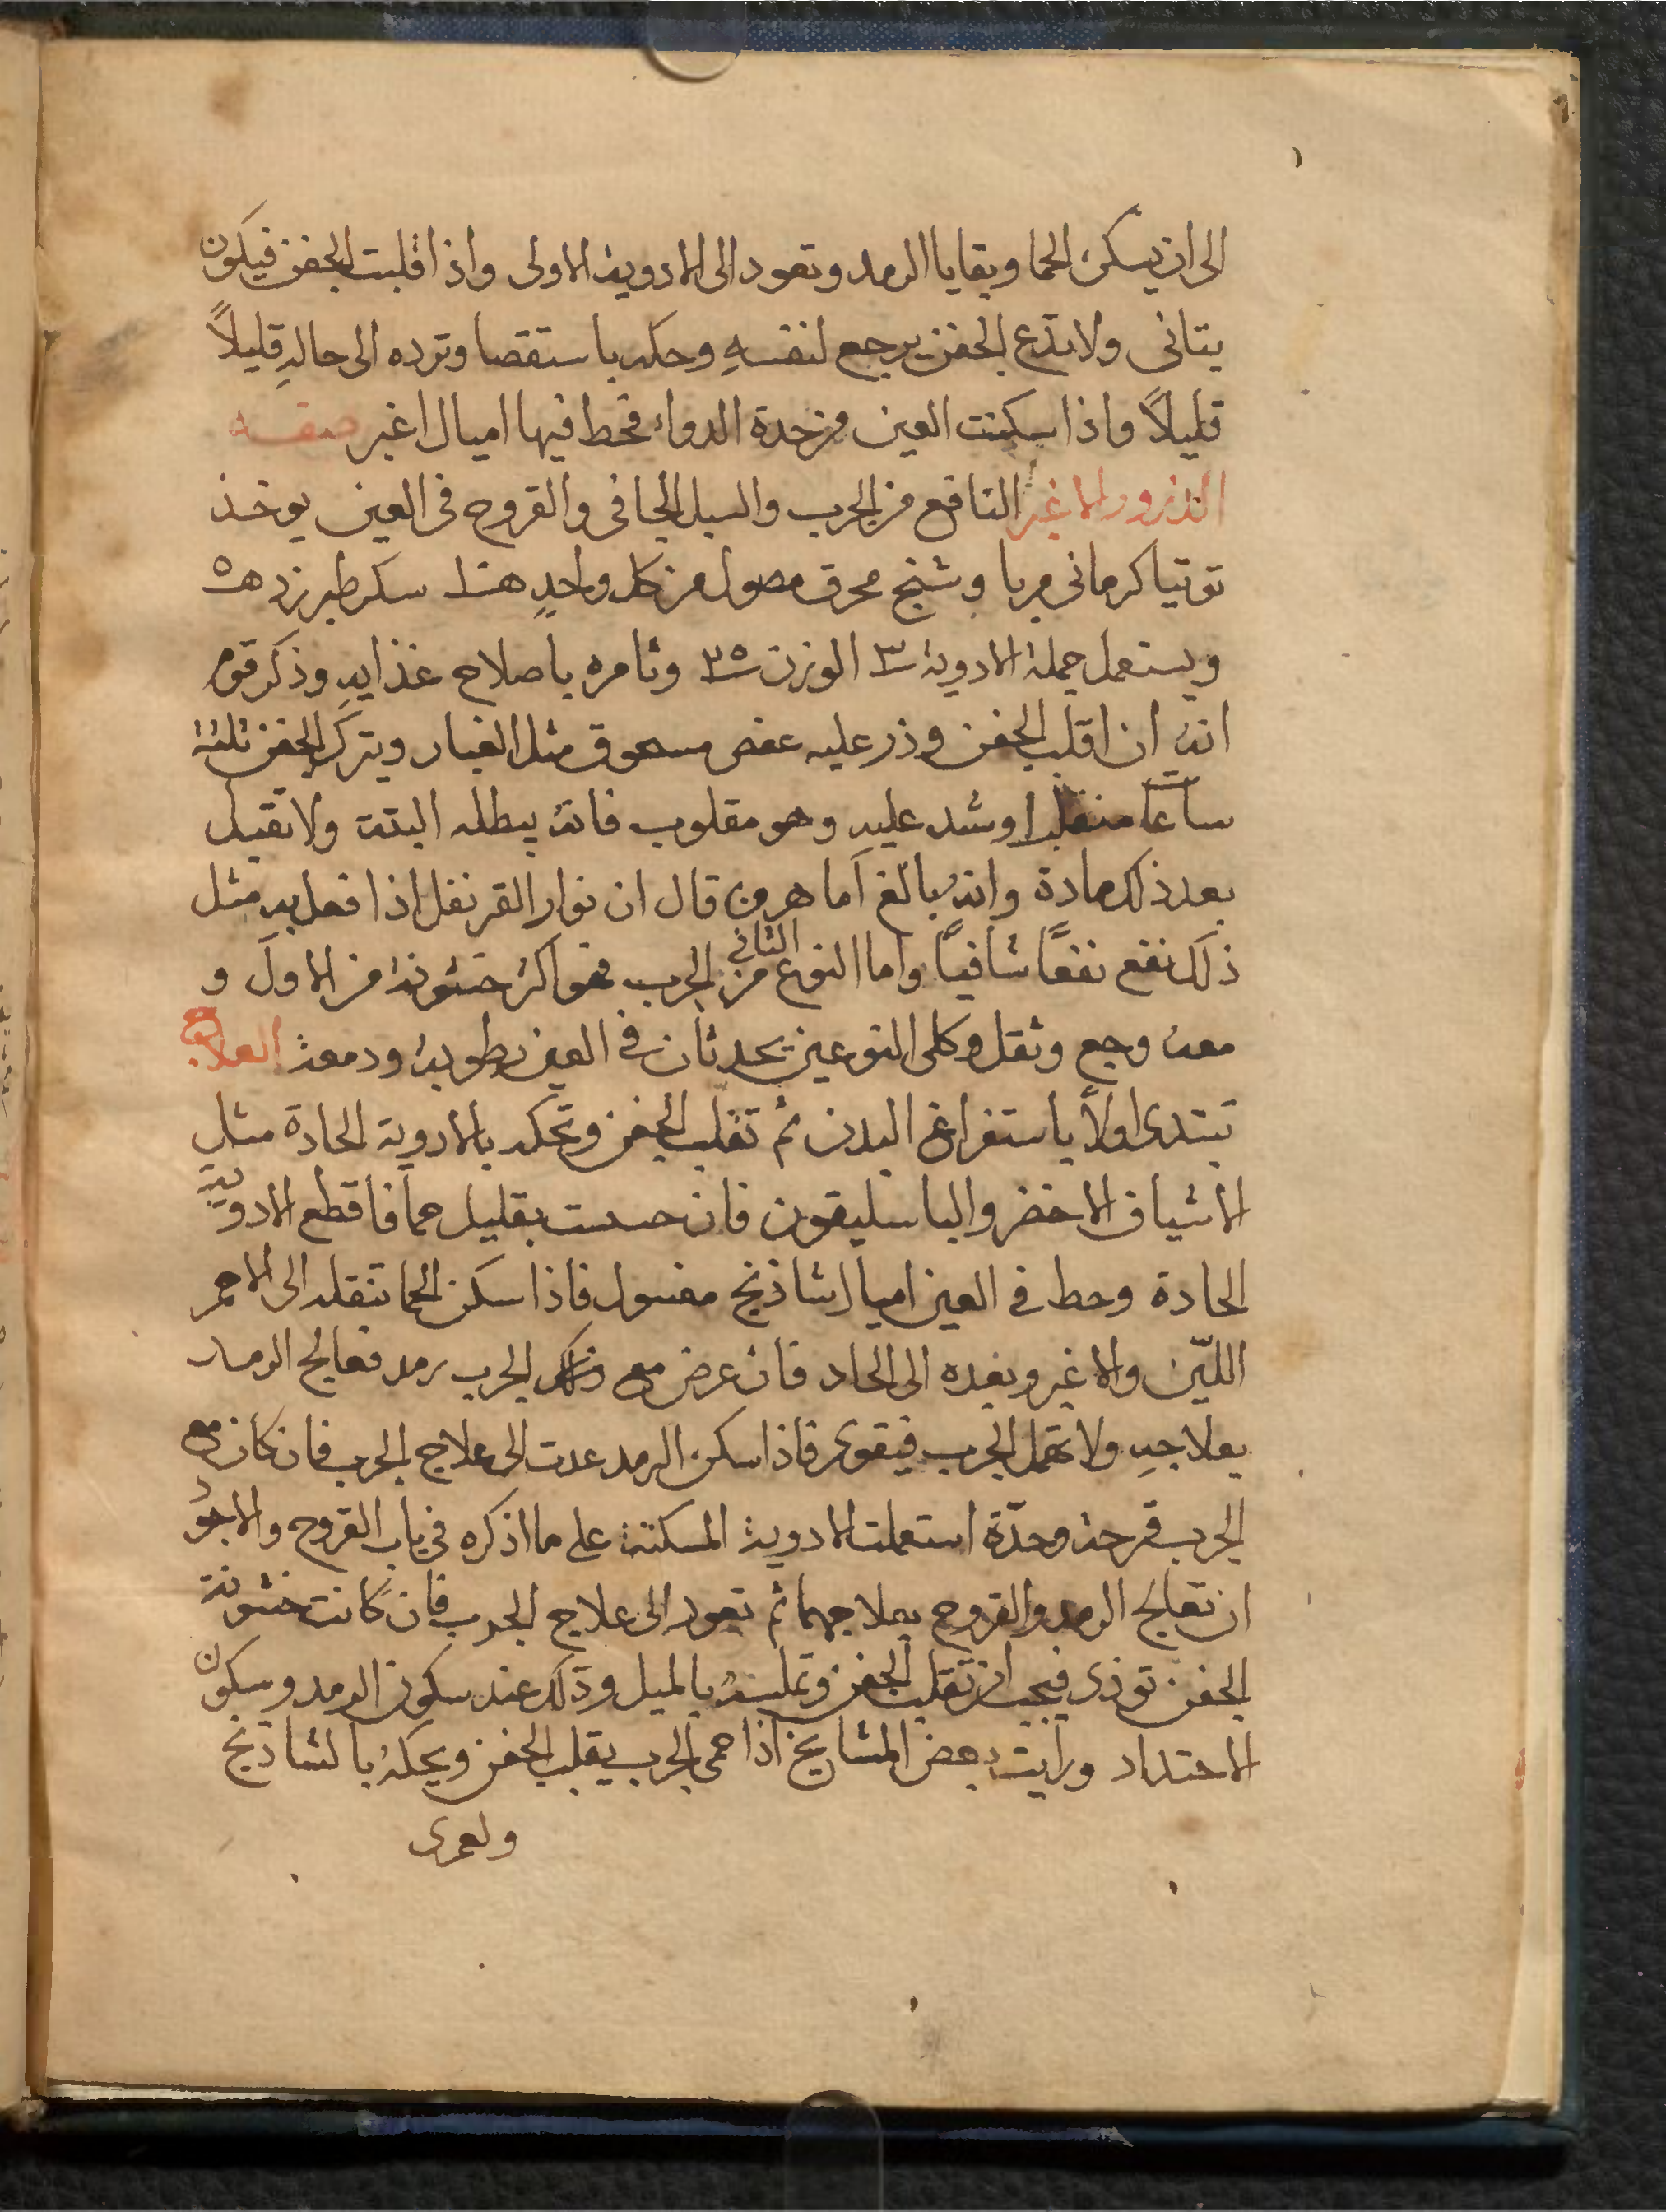 الى ان يسكن الحما وبقايا الرمد وتعود الى الادوية الاولى واذا قلبت الجفن فيكون
بتانى ولا تدع الجفن يرجع لنفسهِ وحكه باستقصا وترده الى حالهِ قليلاً
قليلاً واذا سكنت العين من حدة الدواء فحط فيها اميال اغبر صفه
الذرور الاغبر النافع من الجرب والسبل الجافى والقروح فى العين يوخذ
توتيا كرمانى مربا وشنج محرق مصول من كل واحدٍ سكر طبرزد
ويستعمل جملة الادوية ٣ الوزن ٣٥ وتامره باصلاح غذايهِ وذكر قوم
انه ان اقلب الجفن وذر عليه عفص مسحوق مثل الغبار ويترك الجفن ثلثة
ساعات منقلبا وشد عليهِ وهو مقلوب فانه يبطله البتة ولا تقبل
بعد ذلك مادة وانه بالغ اما هرون قال ان نوار القرنفل اذا فعل بهِ مثل
ذلك نفع نفعًا شافيًا واما النوع الثانى من الجرب فهو اكثر خشونة من الاول و
معه وجع وثقل وكلى النوعين يحدثان فى العين رطوبة ودمعة العلاج
تبتدى اولاً باستفراغ البدن ثم تقلب الجفن وتحكه بالادوية الحادة مثل
الاشياف الاخضر والباسليقون فان حسست بقليل حما فاقطع الادوية
الحادة وحط فى العين اميال شاذنج مغسول فاذا سكن الحما تنقله الى الاحمر
الليّن والاغبر وبعده الى الحاد فان عرض مع ذلك الجرب رمد فعالج الرمد
بعلاجهِ ولا تهمل الجرب فيقوى فاذا سكن الرمد عدت الى علاج الجرب فان كان مع
الجرب قرحة وحدّة استعملت الادوية المسكنة على ما اذكره فى باب القروح والاجود
ان تعالج الرمد والقروح بعلاجهما ثم تعود الى علاج الجرب فان كانت خشونة
الجفن توذى فيجب ان تقلب الجفن وتملسه بالميل وذلك عند سكون الرمد وسكون
الاحتداد ورايت بعض المشايخ اذا حمى الجرب يقلب الجفن ويحكه بالشاذنج
ولعمرى